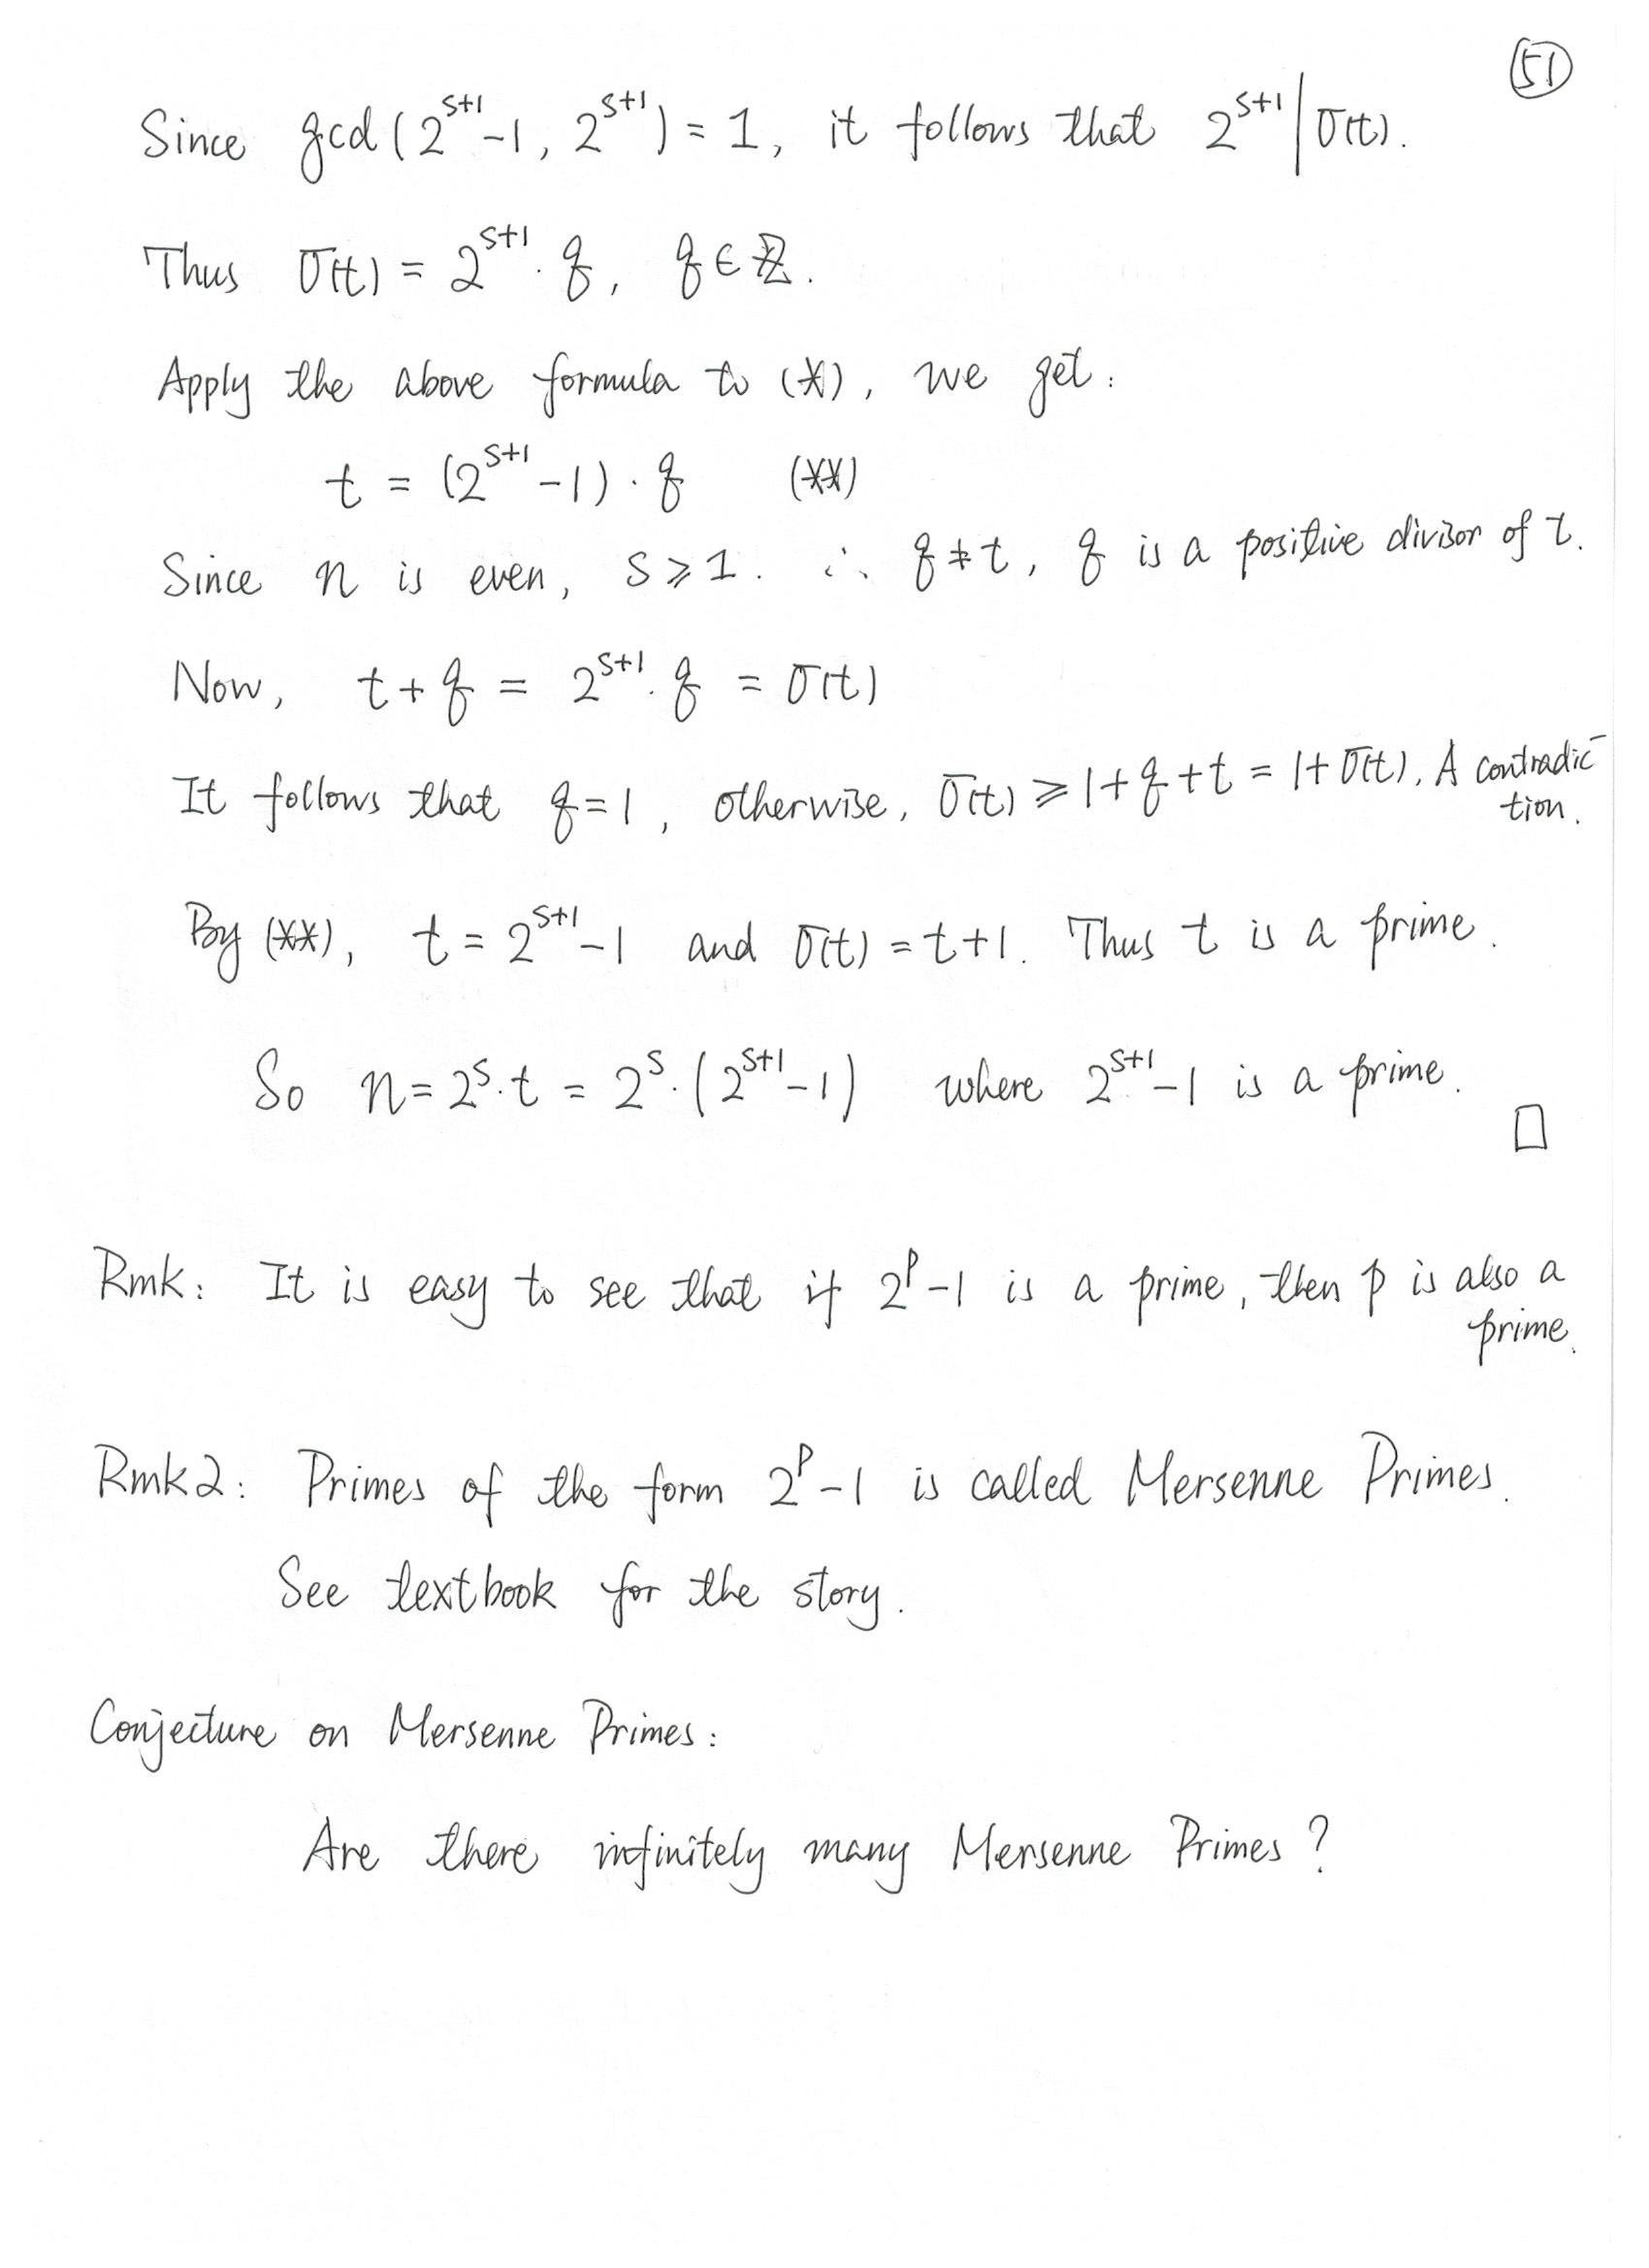 51
Since gcd(2^{s+1}-1, 2^{s+1}) = 1, it follows that 2^{s+1} | σ(t).
Thus σ(t) = 2^{s+1}·q, q ∈ ℤ.
Apply the above formula to (*), we get:
t = (2^{s+1}-1)·q (**)
Since n is even, s ≥ 1. ∴ q ≠ t, q is a positive divisor of t.
Now, t+q = 2^{s+1}·q = σ(t)
It follows that q=1, otherwise, σ(t) ≥ 1+q+t = 1+σ(t). A contradic-
tion.
By (**), t = 2^{s+1}-1 and σ(t) = t+1. Thus t is a prime.
So n = 2^s·t = 2^s·(2^{s+1}-1) where 2^{s+1}-1 is a prime.
□
Rmk: It is easy to see that if 2^p-1 is a prime, then p is also a
prime.
Rmk2: Primes of the form 2^p-1 is called Mersenne Primes.
See textbook for the story.
Conjecture on Mersenne Primes:
Are there infinitely many Mersenne Primes?